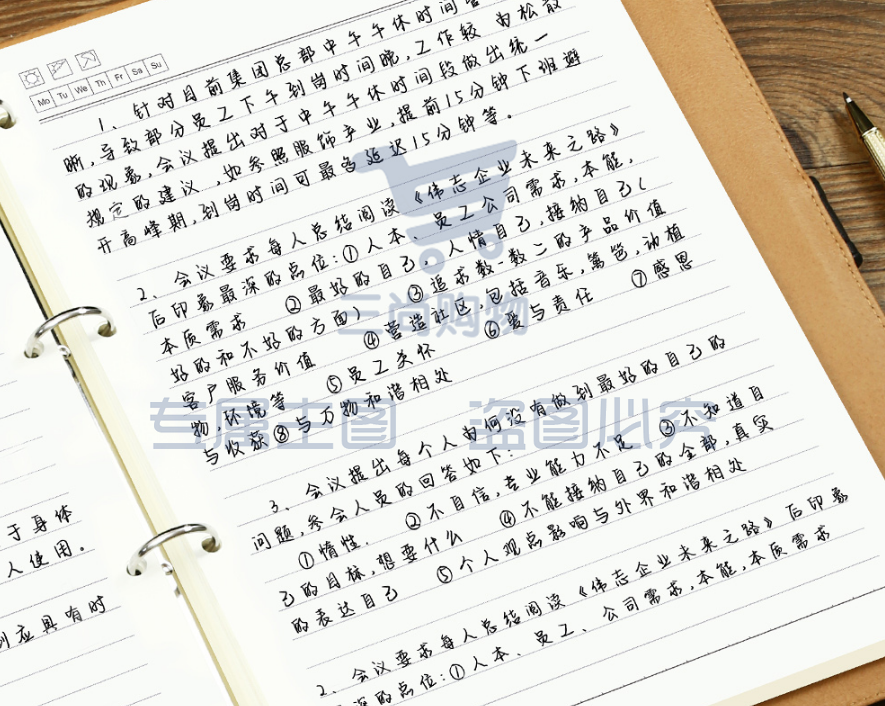 Mo Tu We Th Fr Sa Su
1、针对目前集团总部中午午休时间
晰,导致部分员工下午到岗时间晚,工作较为松散
的现象,会议提出对于中午午休时间段做出统一
规定的建议,如参照服饰产业,提前15分钟下班避
开高峰期,到岗时间可最多延迟15分钟等。
2、会议要求每人总结阅读《伟志企业未来之路》
后印象最深的点位:①人本、员工公司需求,本能,
本质需求 ②最好的自己,人情自己,接纳自己(
好的和不好的方面) ③追求数一数二的产品价值
客户服务价值 ④营造社区,包括音乐,篱笆,动植
物,环境等 ⑤员工关怀 ⑥爱与责任 ⑦感恩
与收获⑧与万物和谐相处
3、会议提出每个人为何没有做到最好的自己的
问题,参会人员的回答如下:
①惰性. ②不自信,专业能力不足 ③不知道自
己的目标,想要什么 ④不能接纳自己的全部,真实
的表达自己 ⑤个人观点影响与外界和谐相处
2、会议要求每人总结阅读《伟志企业未来之路》后印象
深的点位:①人本、员工、公司需求,本能,本质需求
于身体
人使用。
应具有时
三尚购物
专属主图 盗图必究